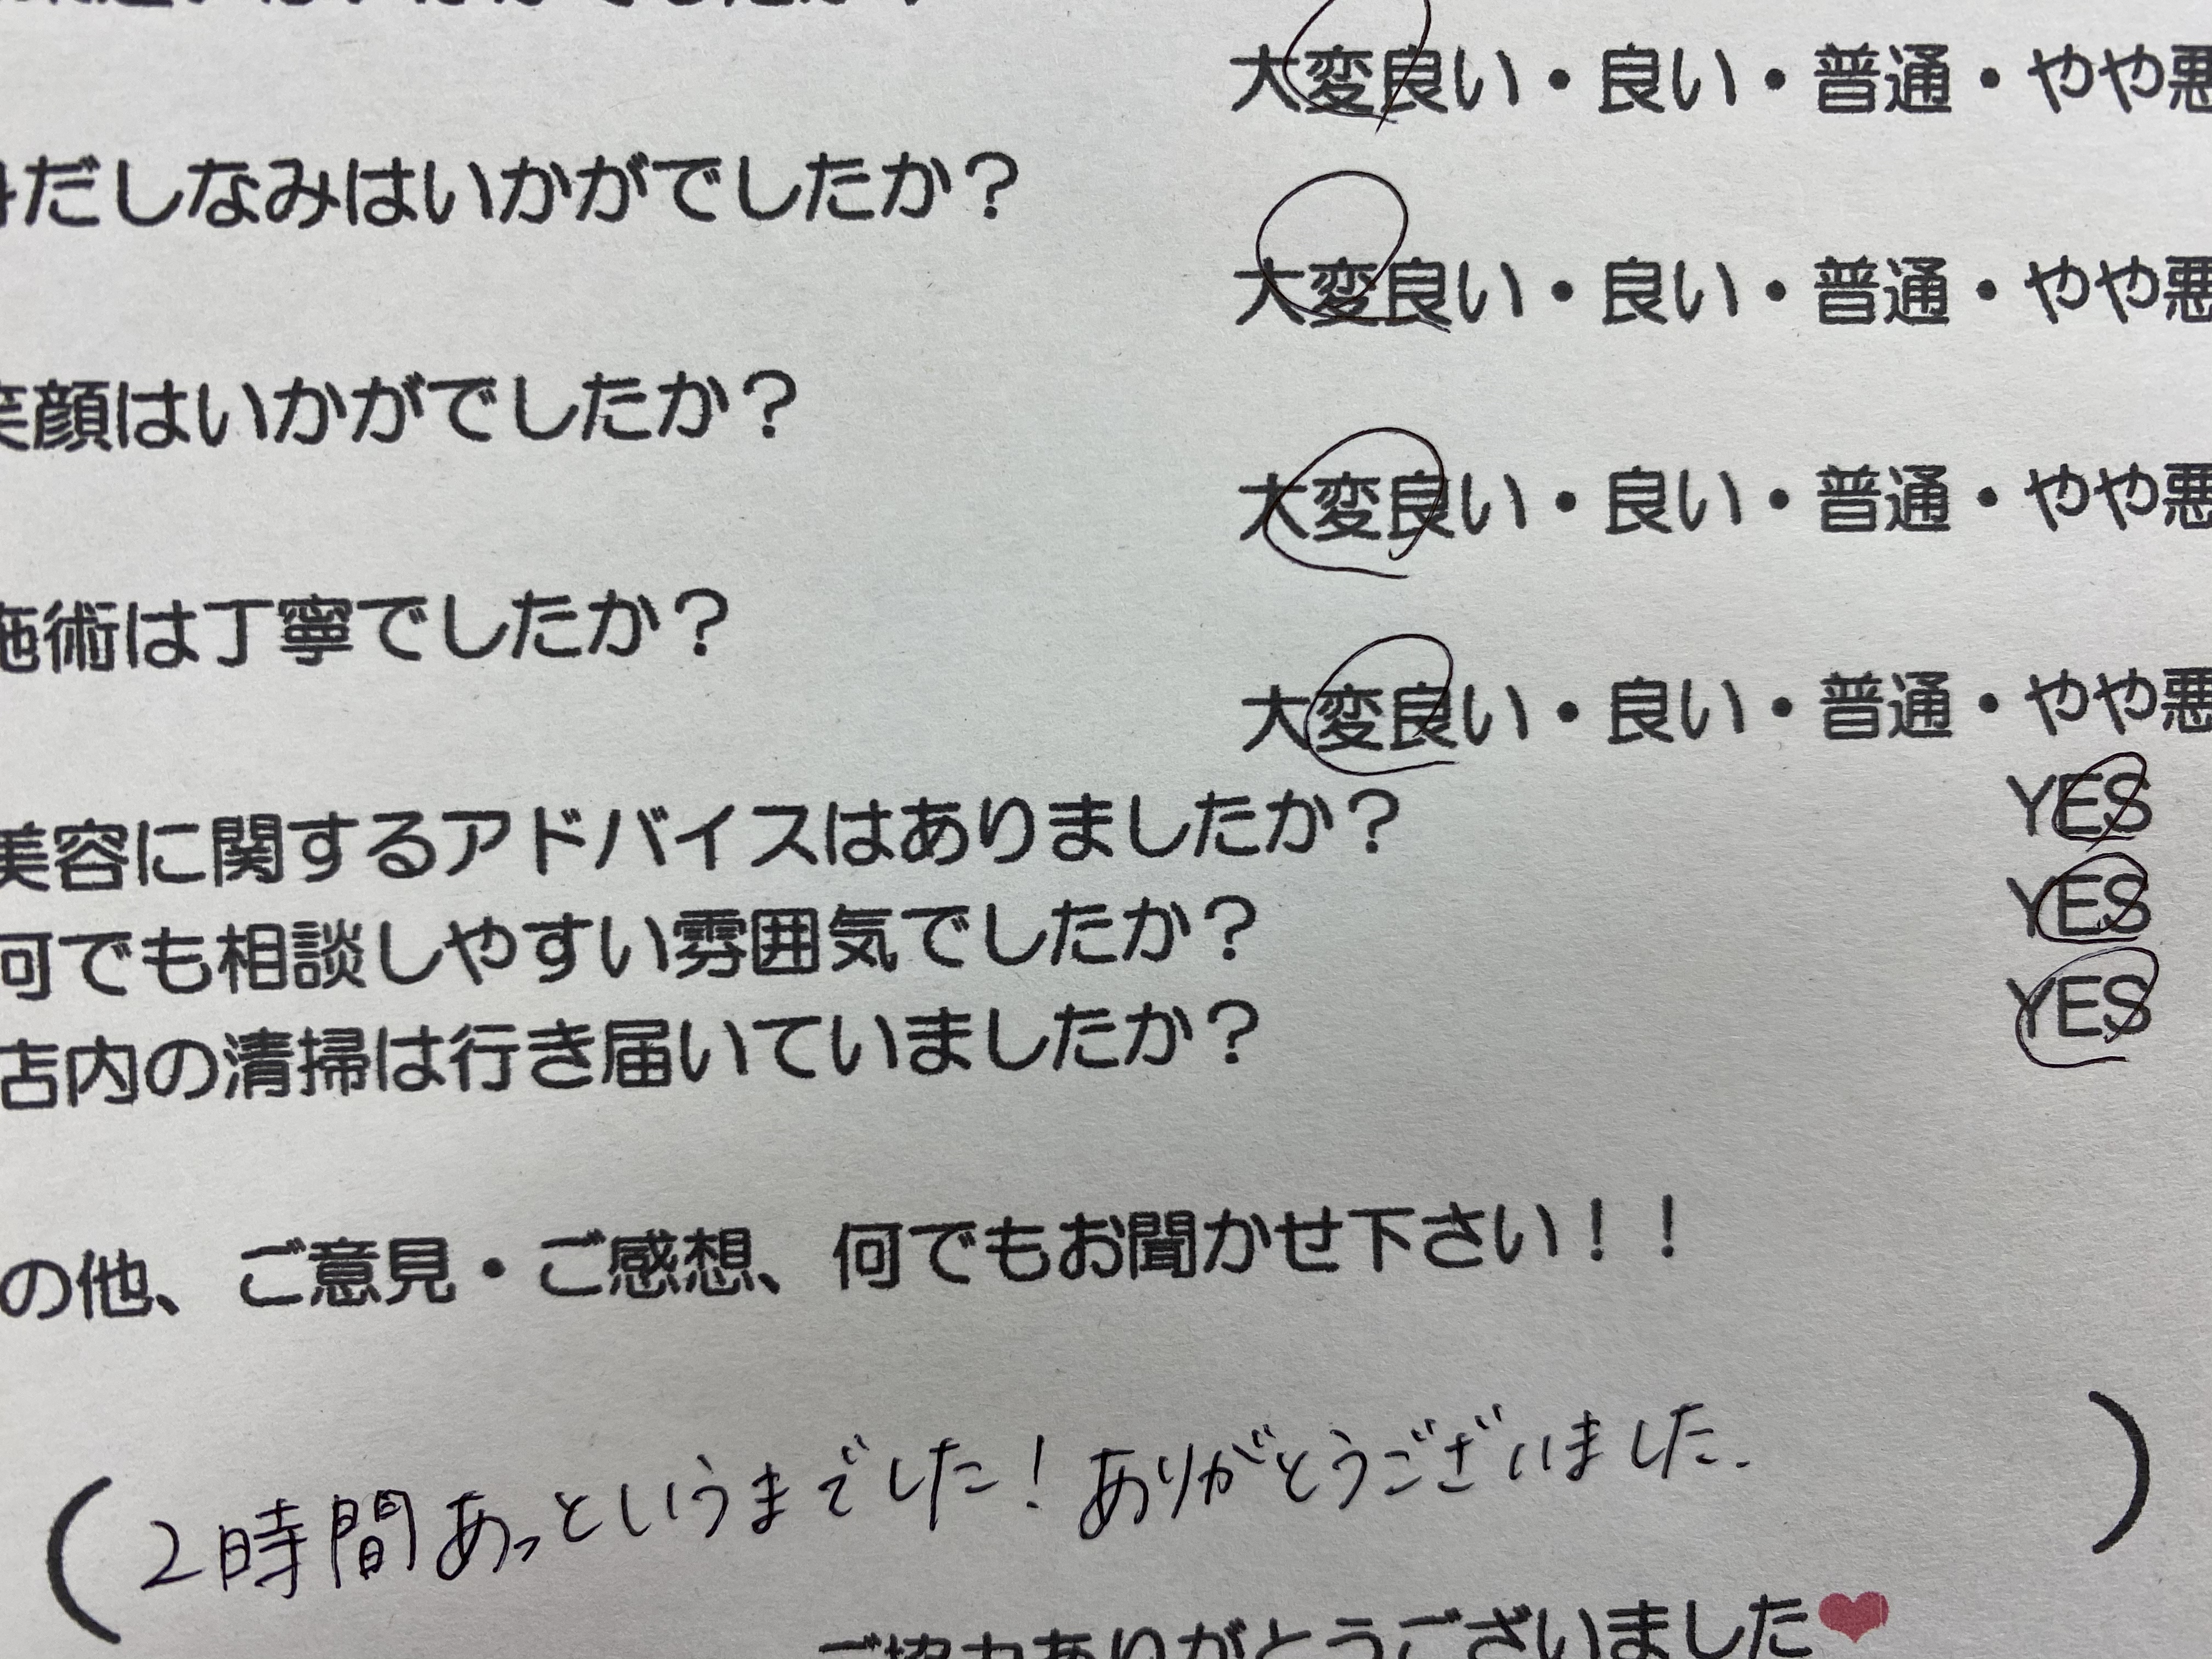 大変良い・良い・普通・やや悪
身だしなみはいかがでしたか？
大変良い・良い・普通・やや悪
笑顔はいかがでしたか？
大変良い・良い・普通・やや悪
施術は丁寧でしたか？
大変良い・良い・普通・やや悪
美容に関するアドバイスはありましたか？ YES
何でも相談しやすい雰囲気でしたか？ YES
店内の清掃は行き届いていましたか？ YES
の他、ご意見・ご感想、何でもお聞かせ下さい！！
（2時間あっというまでした！ありがとうございました.）
ご協力ありがとうございました❤